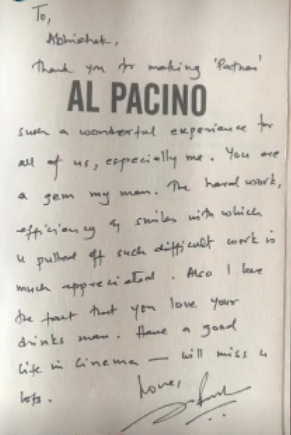 To,
Abhishek,
Thank you for making 'Pathan'
AL PACINO
such a wonderful experience for
all of us, especially me. You are
a gem my man. The hard work,
efficiency & smiles with which
u pulled off such difficult work is
much appreciated. Also I love
the fact that you love your
drinks man. Have a good
life in Cinema — will miss u
lots.
Love,